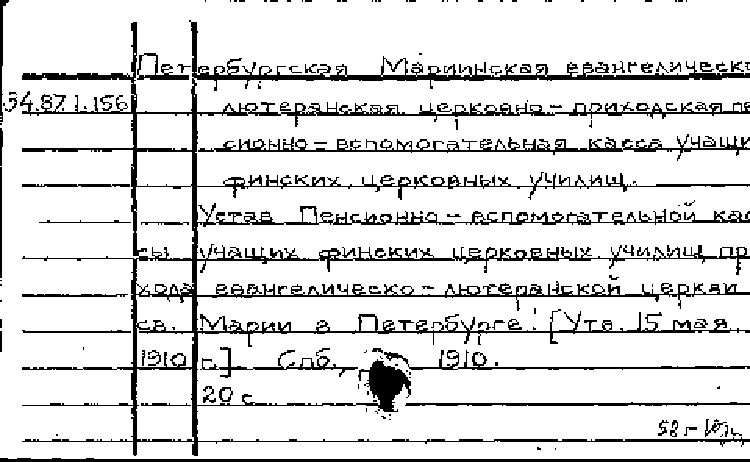 Петербургская Мариинская евангелическо
34.87.1.156 лютеранская церковно-приходская пе
сионно-вспомогательная касса учащи
финских церковных училищ.
Устав Пенсионно-вспомогательной кас
сы учащих финских церковных училищ при
хода евангелическо-лютеранской церкви
св. Марии в Петербурге. [Утв. 15 мая
1910 г.] Спб., 1910.
20 с